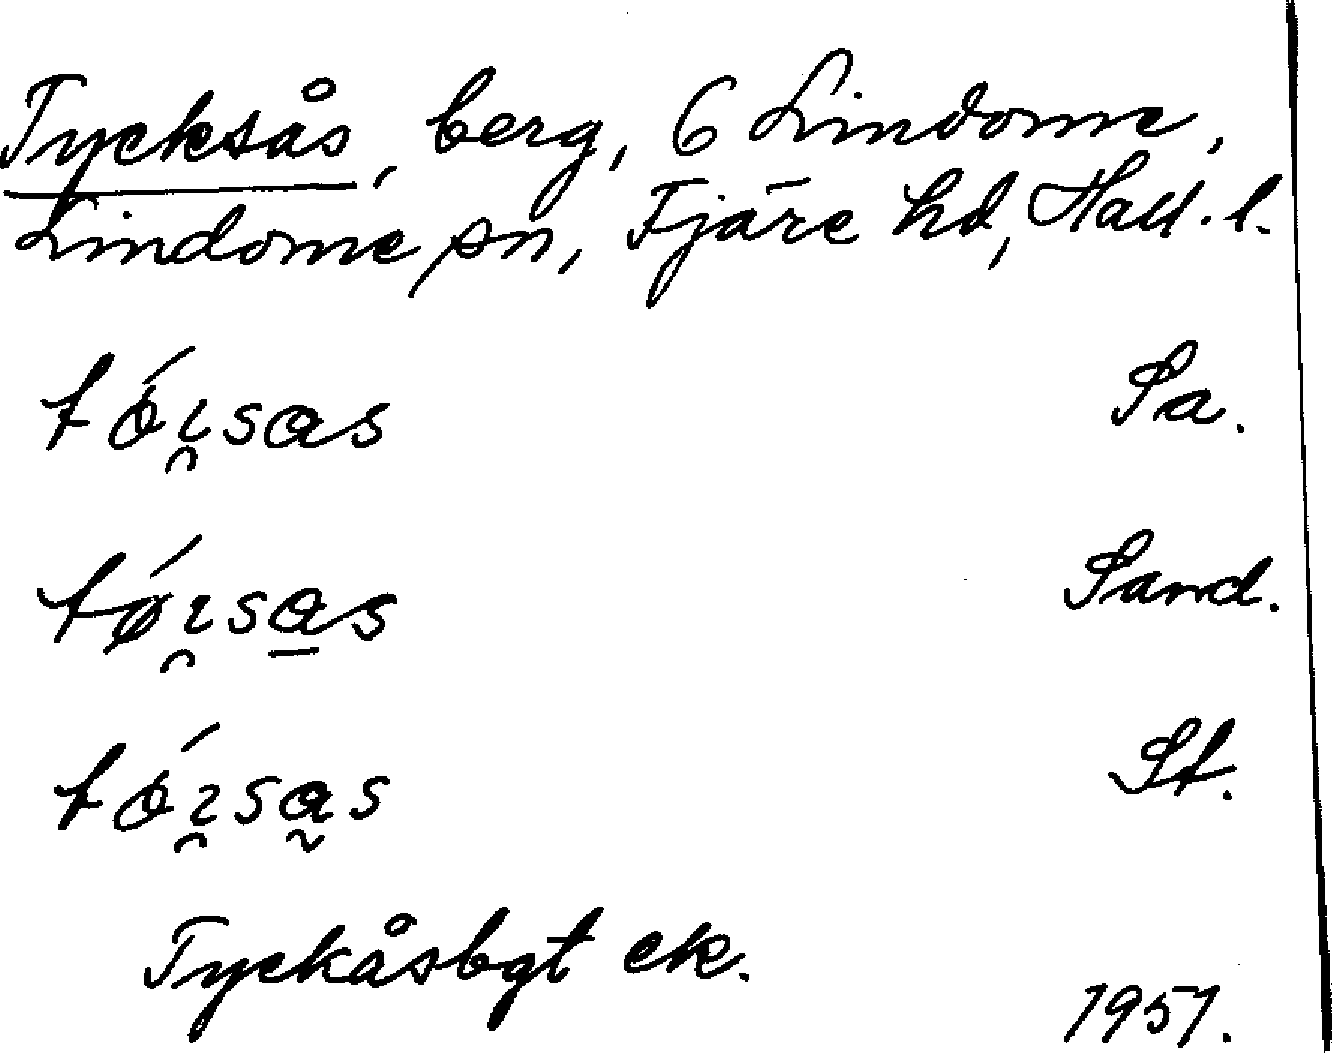 Tycksås, berg, 6 Lindome,
Lindome sn, Fjäre hd, Hall. l.
tǿɿ̯sas Sa.
tǿɿ̯sa̲s Sand.
tǿɿ̯sa̰s St.
Tyckåsbgt ek.
1951.